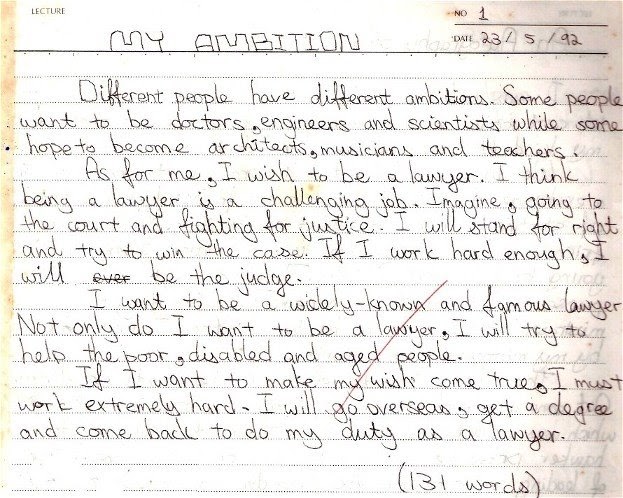 LECTURE
NO 1
MY AMBITION
DATE 23/5/92
Different people have different ambitions. Some people
want to be doctors, engineers and scientists while some
hope to become architects, musicians and teachers.
As for me, I wish to be a lawyer. I think
being a lawyer is a challenging job. Imagine, going to
the court and fighting for justice. I will stand for right
and try to win the case. If I work hard enough, I
will ever be the judge.
I want to be a widely-known and famous lawyer
Not only do I want to be a lawyer, I will try to
help the poor, disabled and aged people.
If I want to make my wish come true, I must
work extremely hard. I will go overseas, get a degree
and come back to do my duty as a lawyer.
(131 words)